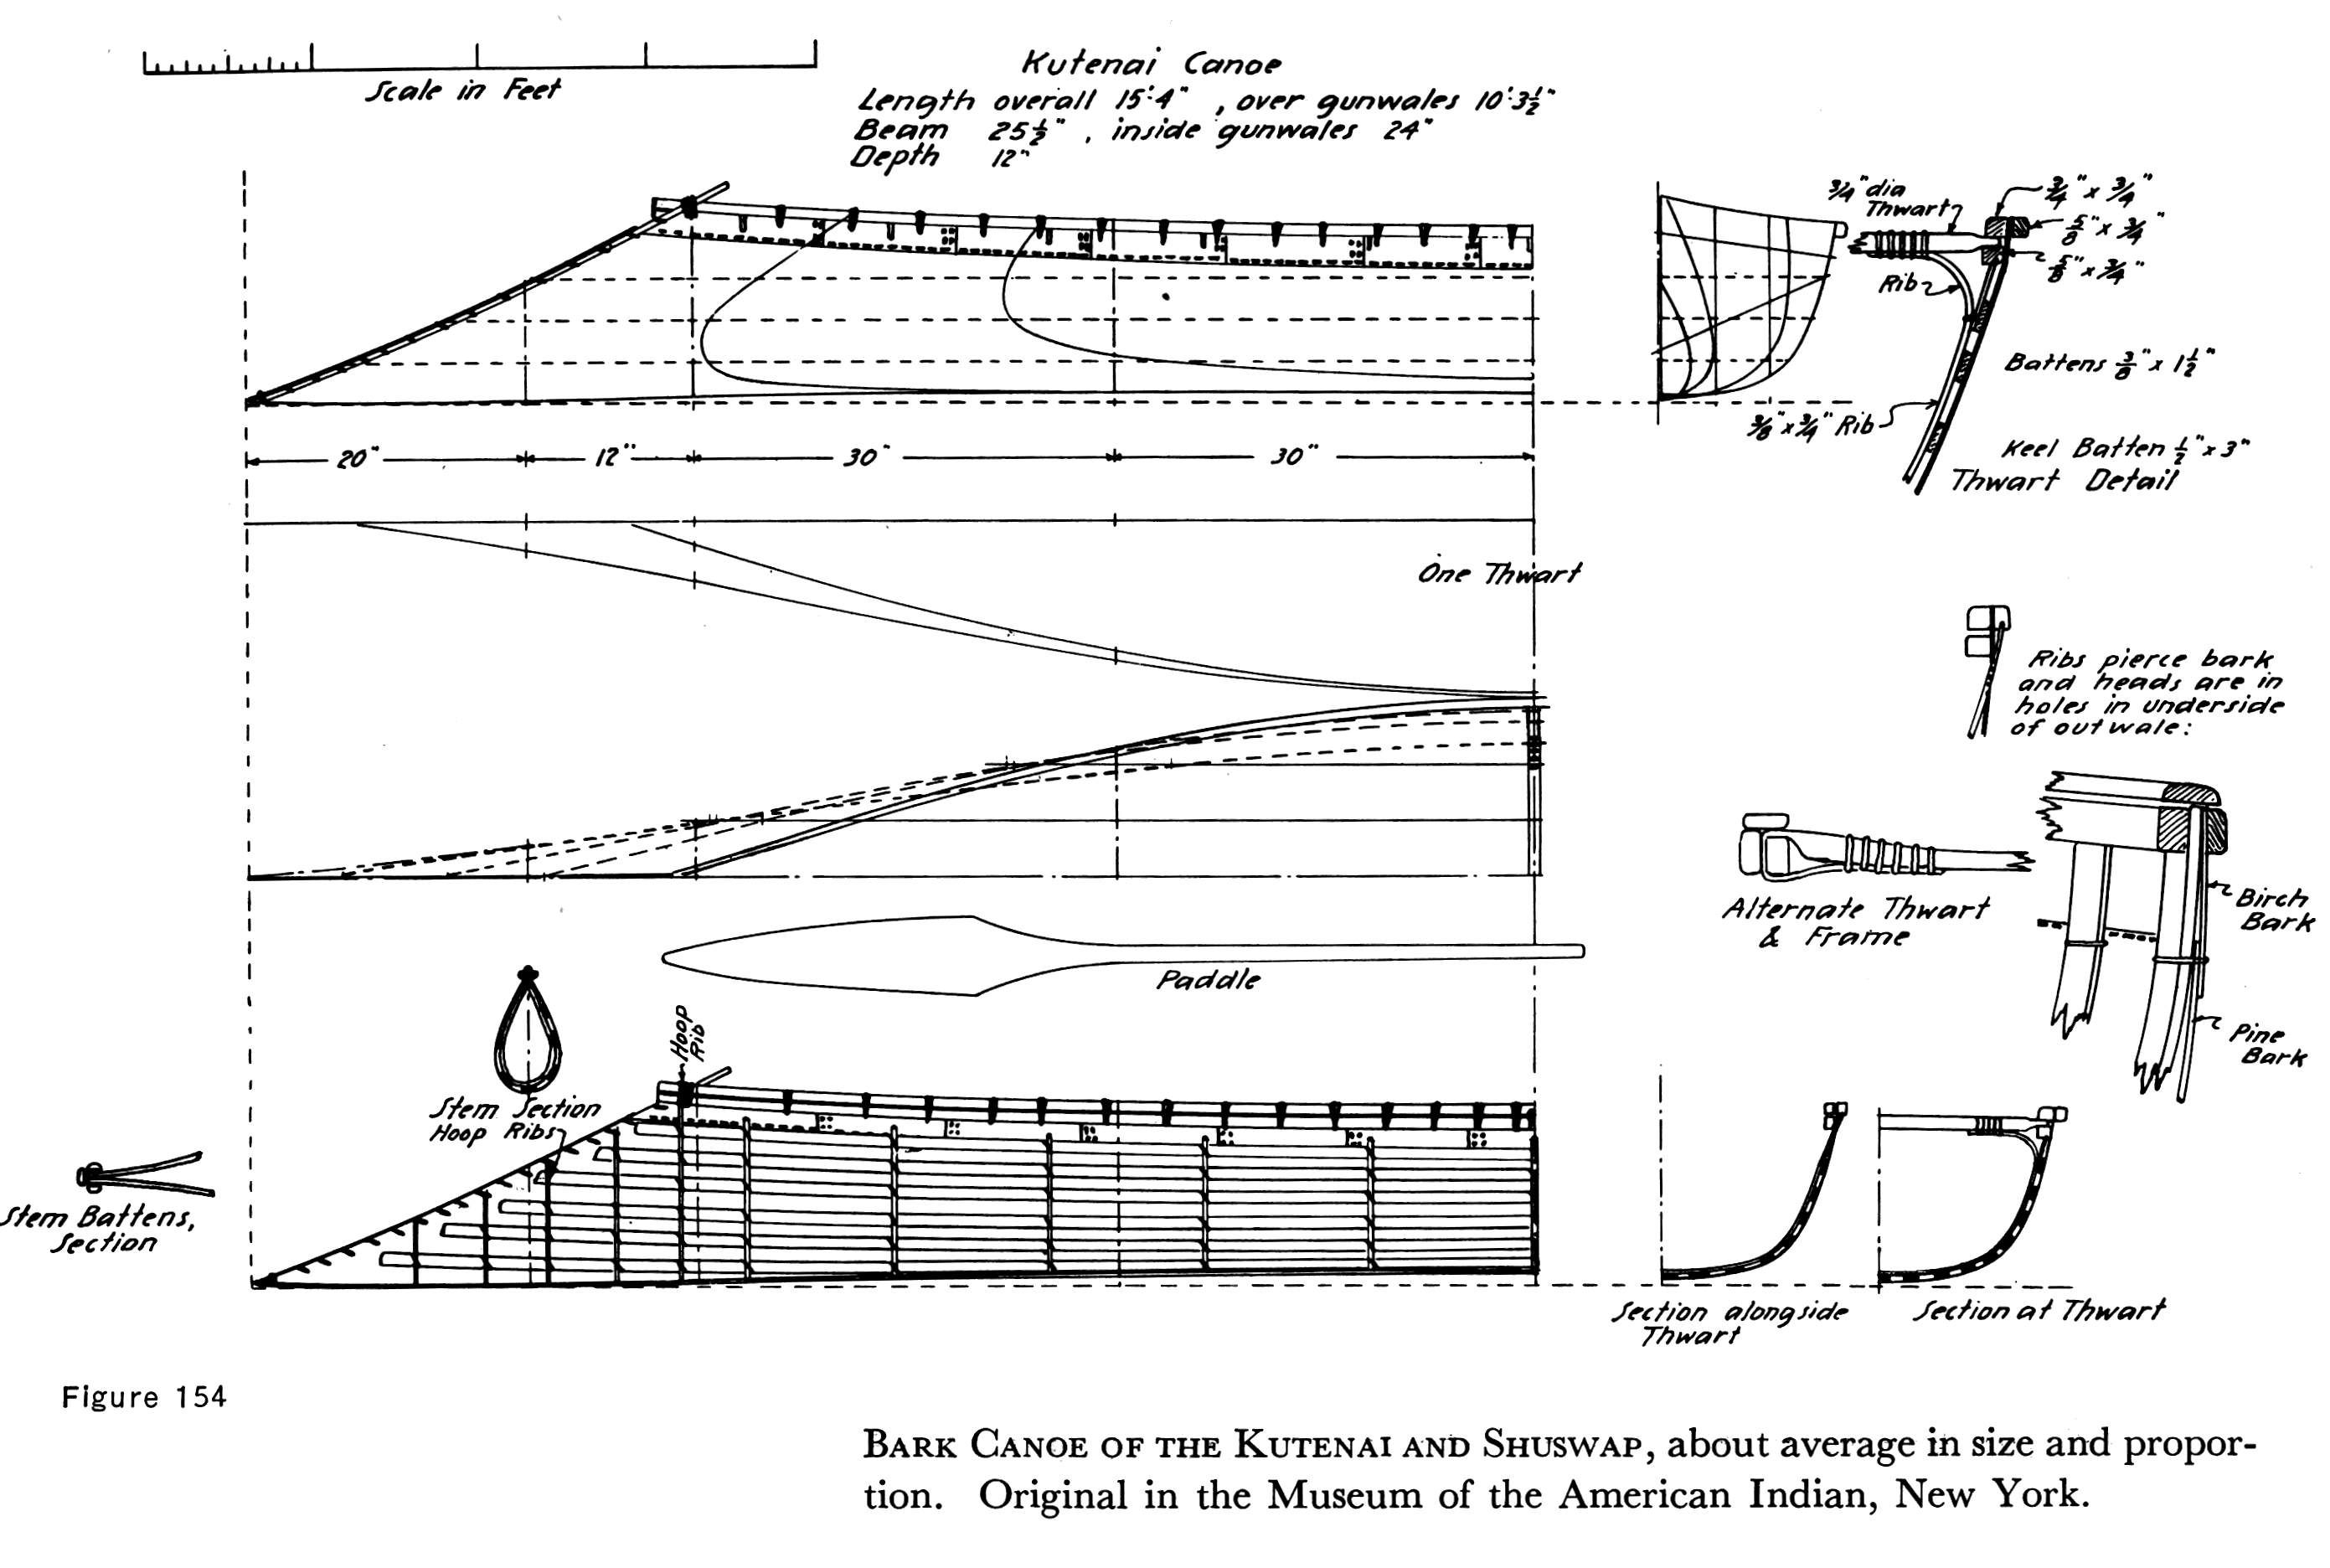 Scale in Feet
Kutenai Canoe
Length overall 15'-4" , over gunwales 10'3½"
Beam 25½" , inside gunwales 24"
Depth 12"
¾" dia
Thwart
¾" x ¾"
⅝" x ¾"
⅝" x ¾"
Rib
Battens ⅜" x 1½"
⅜" x ¾" Rib
Keel Batten ½" x 3"
Thwart Detail
20" 12" 30" 30"
One Thwart
Ribs pierce bark
and heads are in
holes in underside
of outwale:
Alternate Thwart
& Frame
Birch
Bark
Pine
Bark
Paddle
Hoop
Rib
Stem Section
Hoop Ribs
Stem Battens,
Section
Section alongside
Thwart
Section at Thwart
Figure 154
BARK CANOE OF THE KUTENAI AND SHUSWAP, about average in size and propor-
tion. Original in the Museum of the American Indian, New York.